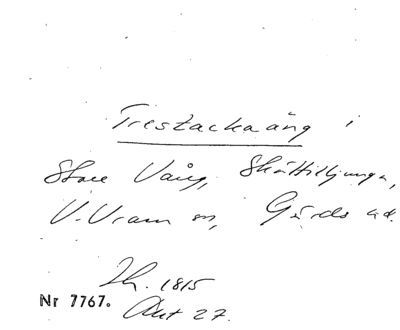 Trestackaäng i
Stora Vång, Skättilljunga,
V. Vram sn, Gärds hd.
Lh. 1815
Akt 27.
Nr 7767.